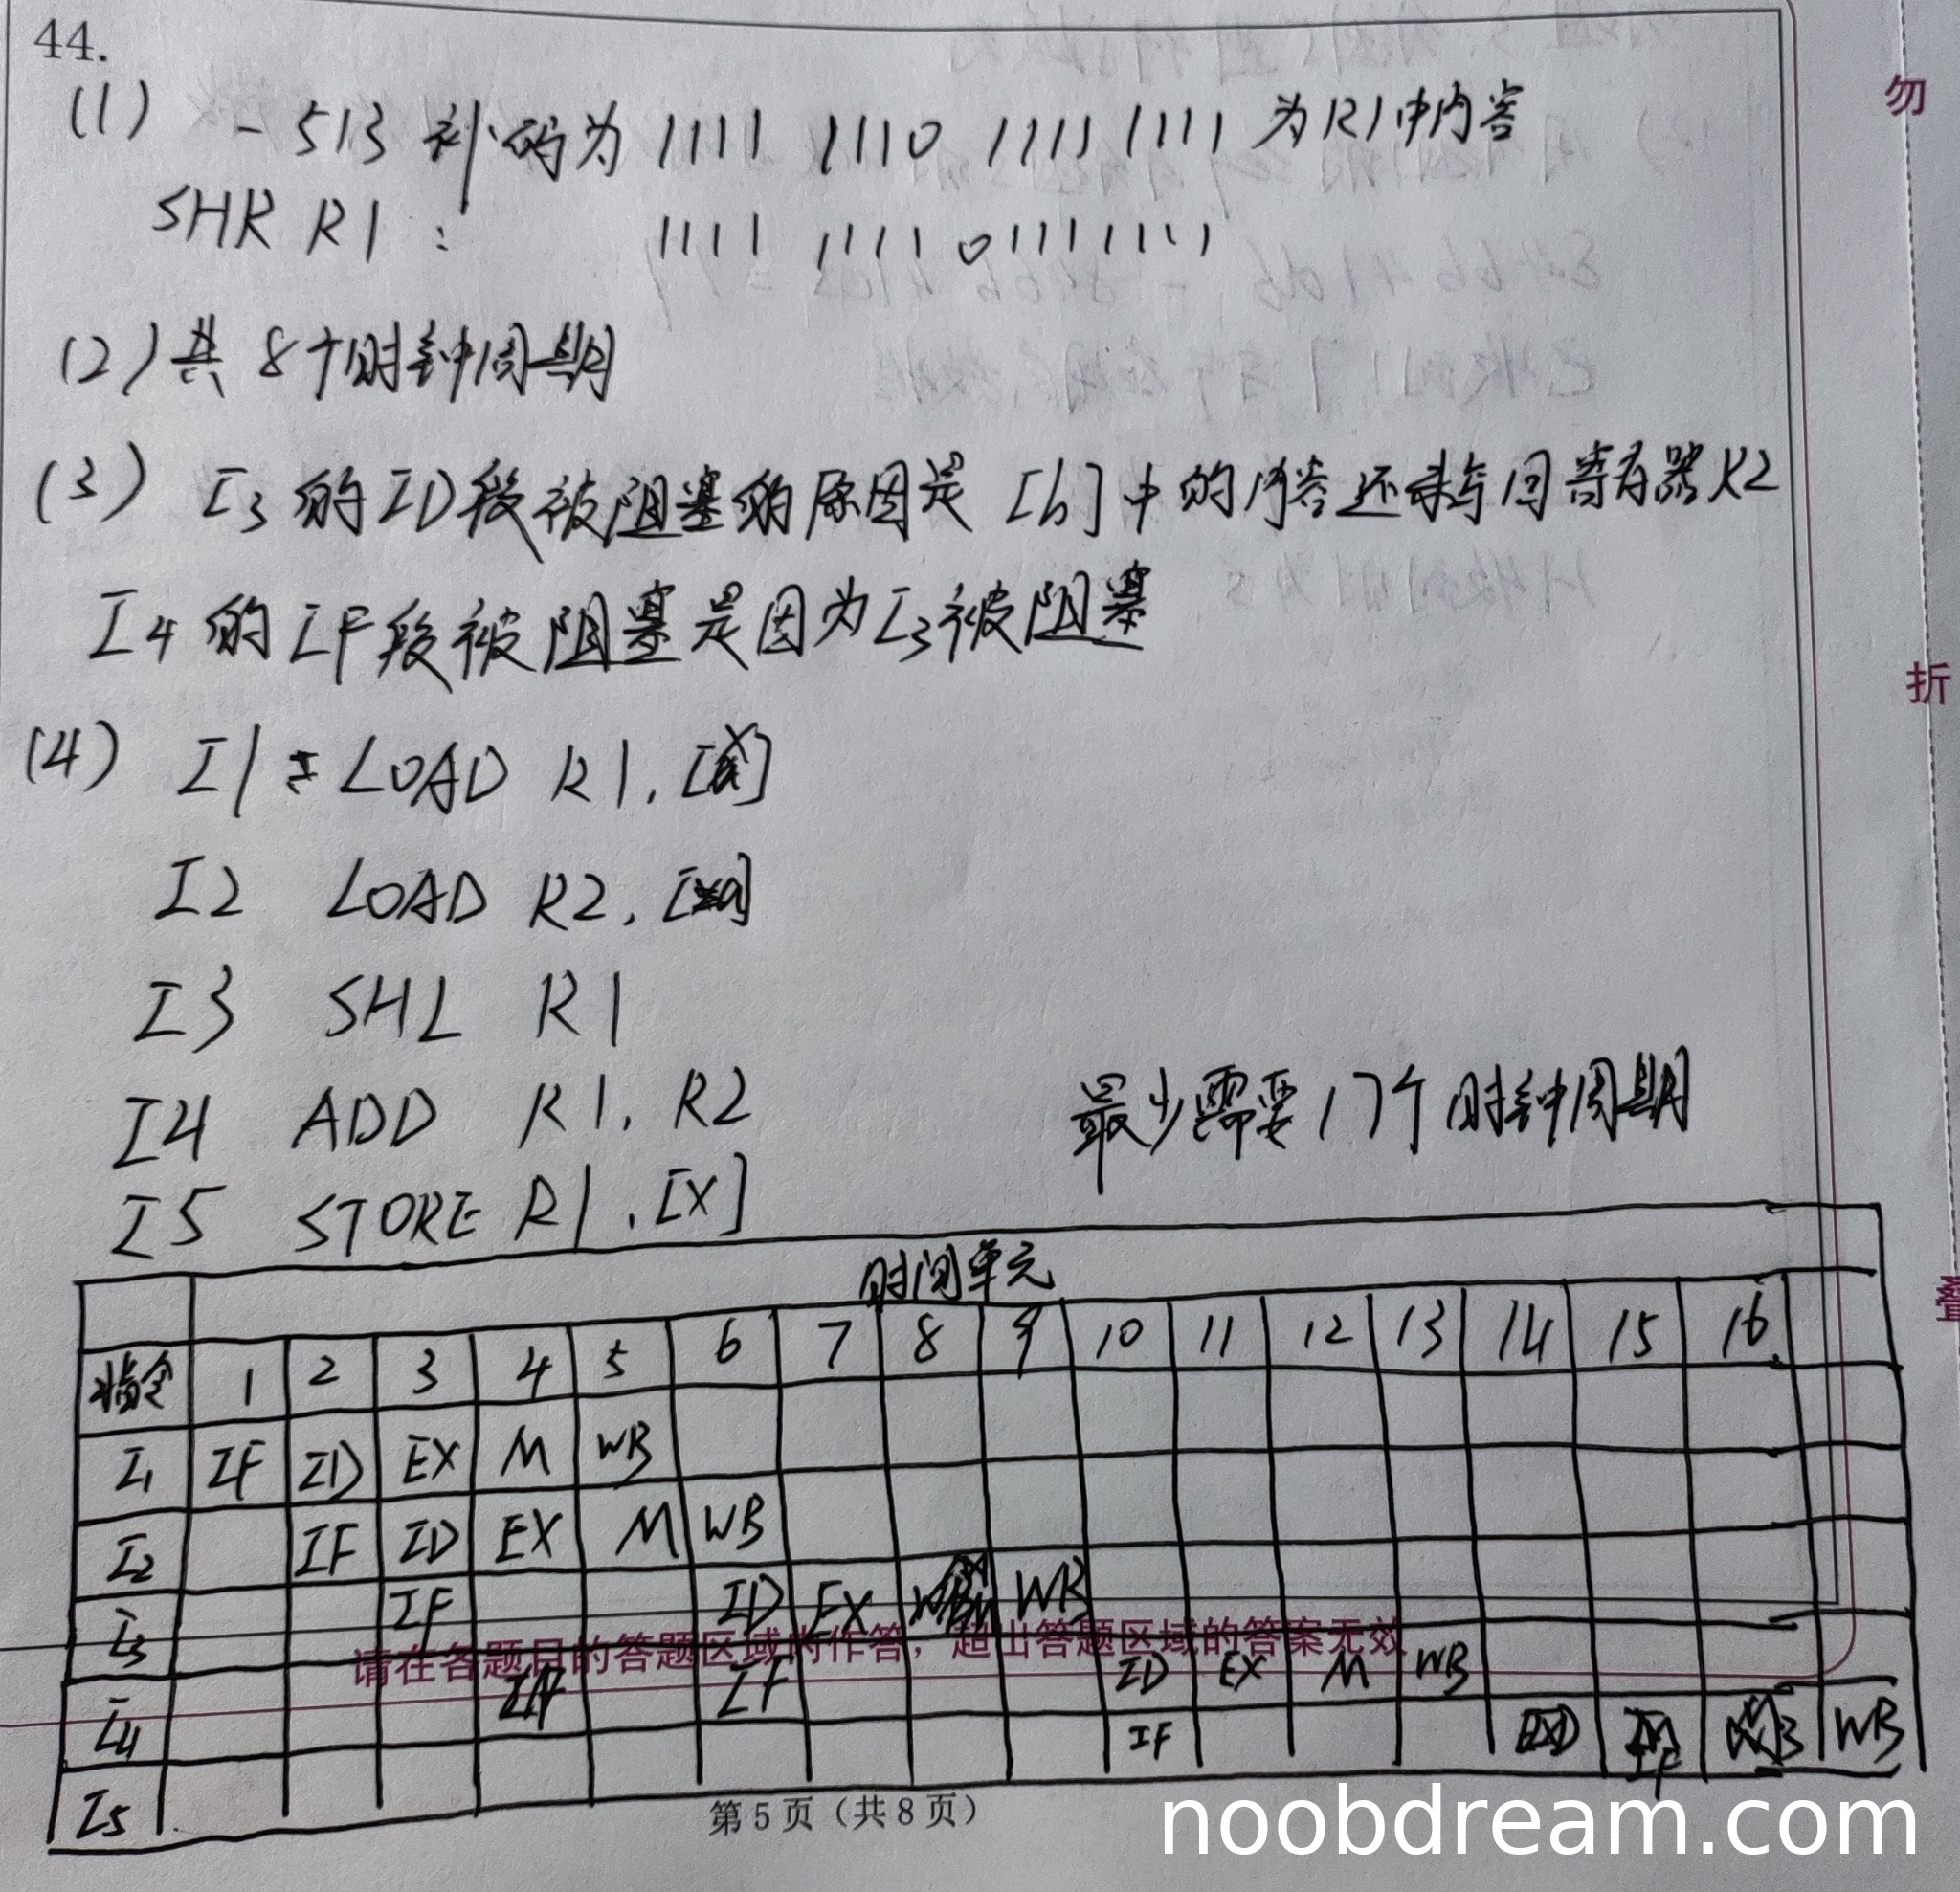 44.
(1) -513补码为 1111 1110 1111 1111 为R1中内容
SHR R1: 1111 1111 0111 1111
(2) 共8个时钟周期
(3) I3的ID段被阻塞的原因是[b]中的内容还未写回寄存器R2
I4的IF段被阻塞是因为I3被阻塞
(4) I1 LOAD R1, [X]
I2 LOAD R2, [a]
I3 SHL R1
I4 ADD R1, R2
最少需要17个时钟周期
I5 STORE R1, [X]
时间单元
指令 1 2 3 4 5 6 7 8 9 10 11 12 13 14 15 16
I1 IF ID EX M WB
I2 IF ID EX M WB
I3 IF ID EX M WB
请在各题目的答题区域内作答，超出答题区域的答案无效
I4 IF ID EX M WB
I5 IF WB
第5页（共8页）
noobdream.com
勿
折
叠